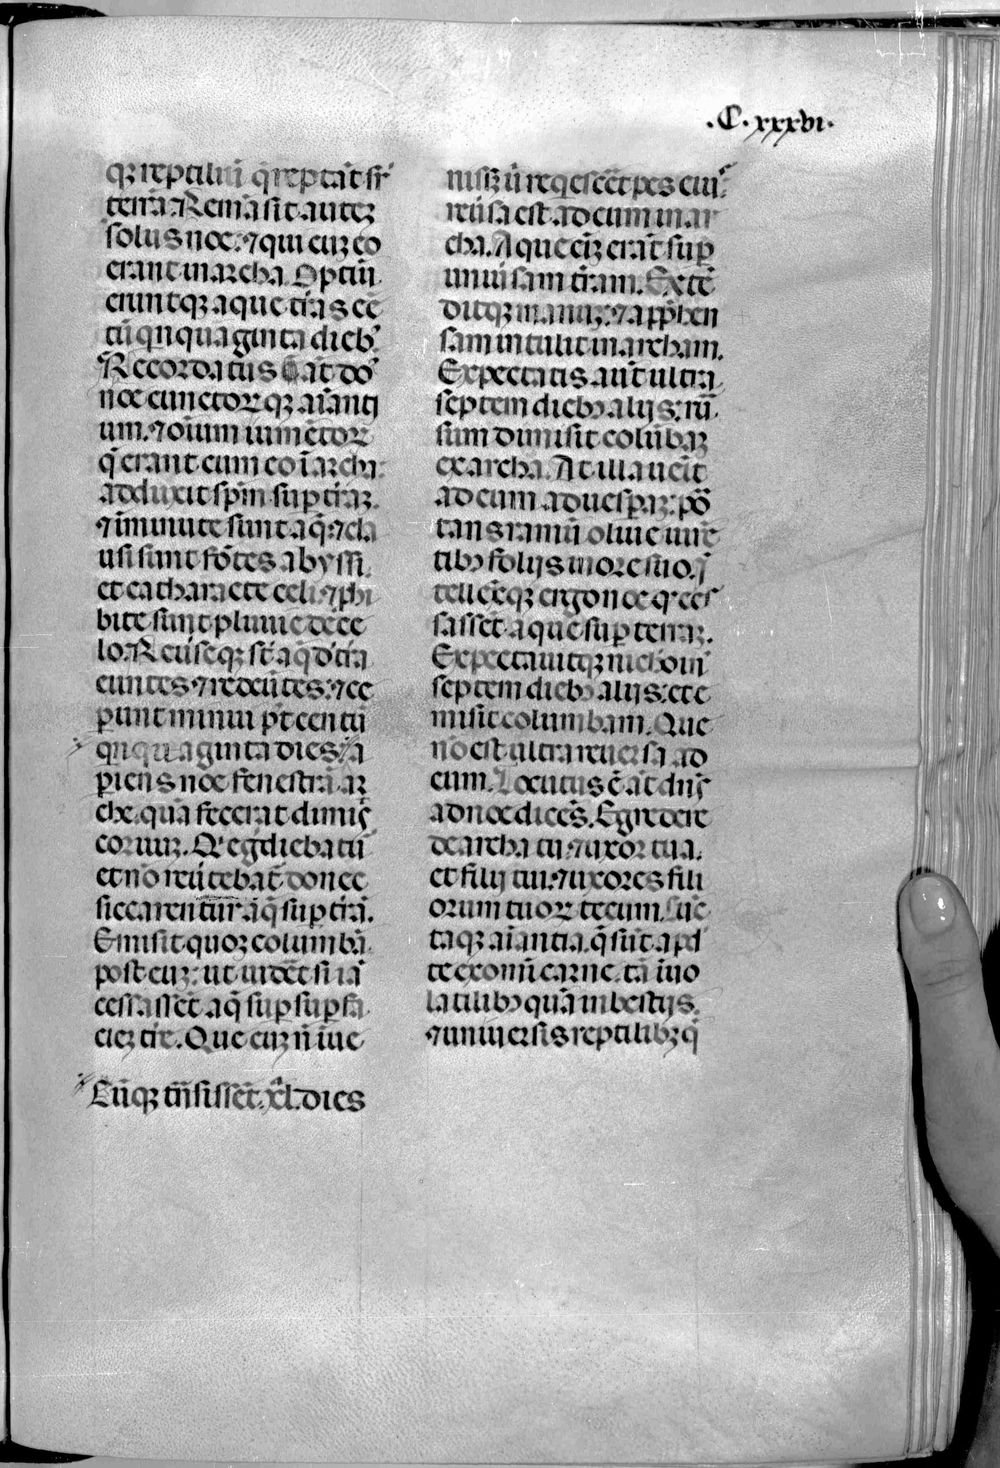 .C. xxxvi.
qȝ reptiliū q̄ reptāt sr̄
terrā. Remāsit autez
solus noe: ⁊ qui cuȝ eo
erant in archa. Optinu
eruntqȝ aque tr̄as cē
tū qn̄quaginta dieb᾽
Recordatus āt do᷒
noe cunctorꝝ qȝ aīanti
um. ⁊ oīum iumētorꝝ
q̄ erant cum eo ī archa:
adduxit sp̄m sup tr̄aȝ.
⁊ īminute sunt aq̄: ⁊ cla
usi sunt fōtes abyssi.
et catharacte celi: ⁊ phi
bite sunt pluuie de ce
lo. Reūseqȝ st̄ aq̄ d̓ tr̄a
euntes ⁊ redeūtes: ⁊ ce
perunt minui p᷒t centū
qn̄quaginta dies. a
periens noe fenestrā ar
che. quā fecerat dimis̄
coruuȝ. Q̓ eg̓diebatū
et nō reūtebat̄ donec
siccarentur aq̄ sup tr̄ā.
Emisit quoȝ columbā
post euȝ: ut uidēt si iā
cessassēt aq̄ sup supfi
cieȝ tr̄e. Que cuȝ n̄ īue
Cūqȝ trn̄sissēt .xl. dies
nisȝ u᷒ reqescēt pes eiu᷒
reūsa est ad eum in ar
cha. Aque eīȝ erāt sup
uniūsam tr̄am. Extē
ditqȝ manuȝ: ⁊ app̄hen
sam intulit in archam.
Expectatis aūt ultra
septem dieb᷒ alijs: rū
sum dimisit colūbaȝ
ex archa. At illa uēit
ad eum ad uespaȝ: pō
tans ramū oliue uirē
tib᷒ folijs in ore suo. ī
tellexitqȝ ergo noe q᷒ ces
sassēt aque sup terraȝ.
Expectauitqȝ nichomī
septem dieb᷒ alijs: et e
misit columbam. Que
nō est ultra reuersa ad
eum. Locutus ē āt dn̄s
ad noe dicēs. Egredere
de archa tu ⁊ uxor tua.
et filij tui. ⁊ uxores fili
orum tuorꝝ tecum. Cūc
taqȝ aīantia. q̄ sūt apd̓
te ex omī carne. tā ī uo
latilib᷒ quā in bestijs.
⁊ uniuersis reptilibȝ q̄